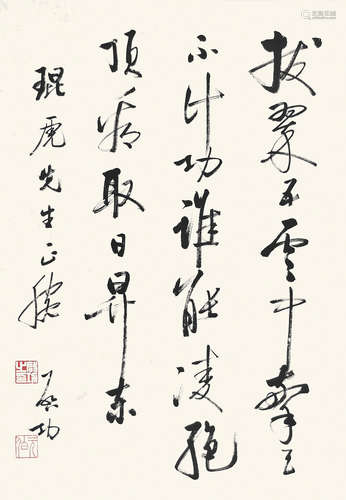 拔翠五雲中擎天
不計功誰能凌絕
頂看取日昇東
琨虎先生正腕
啟功